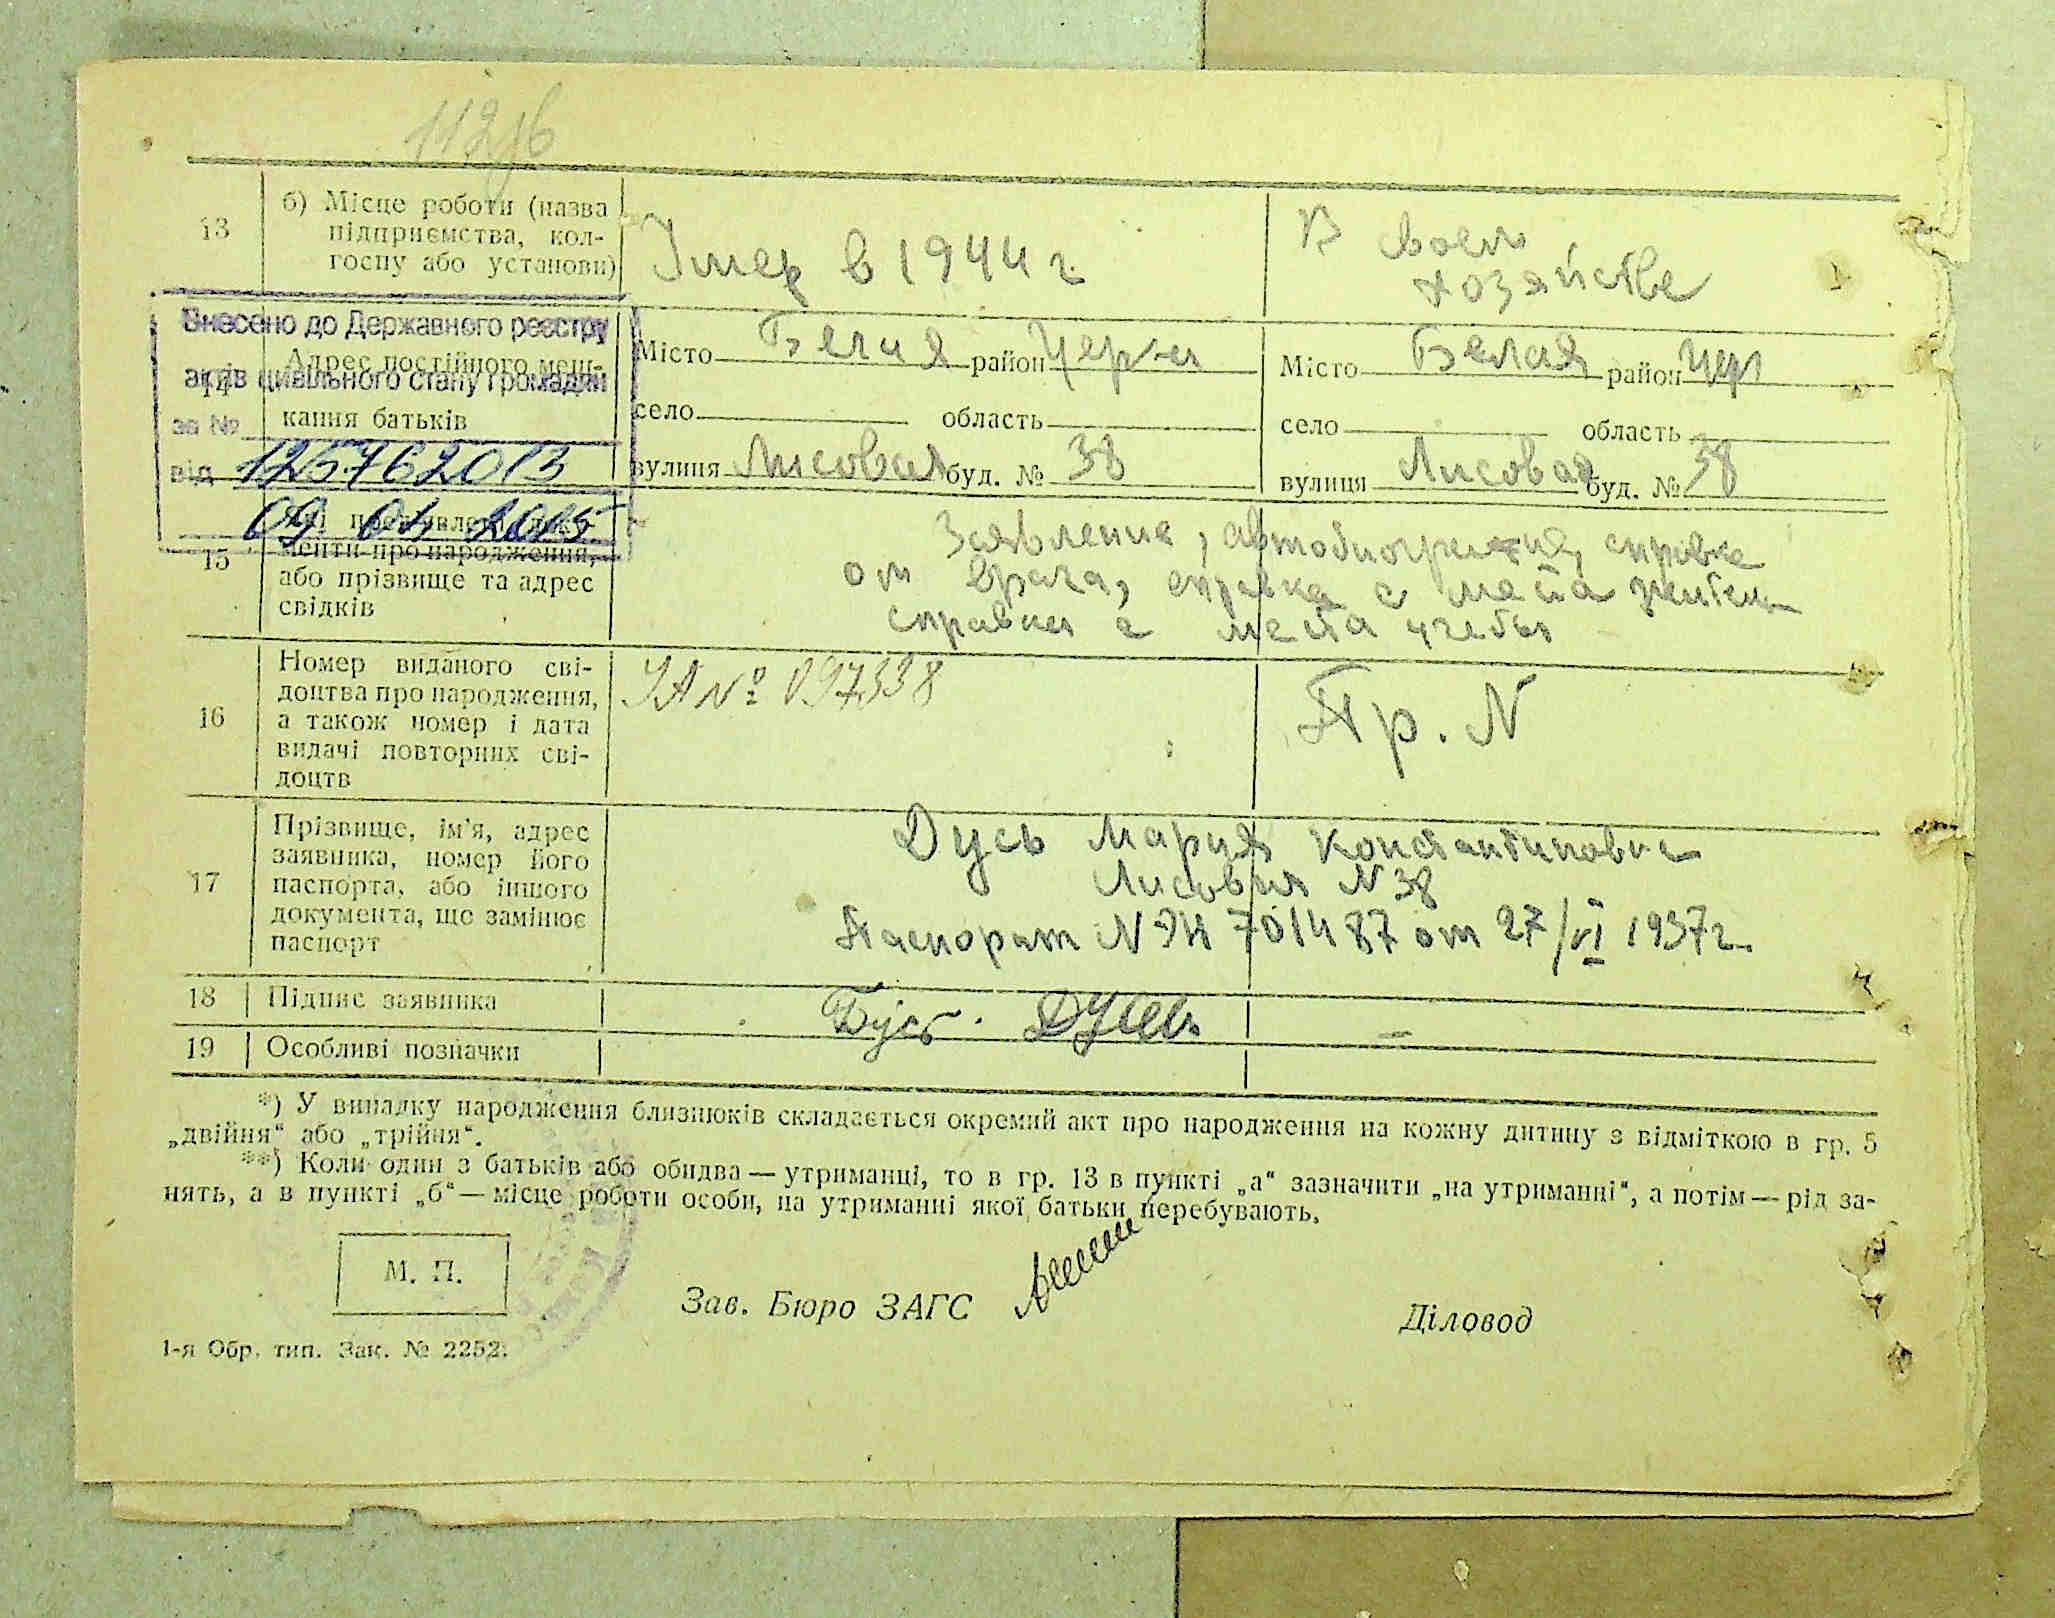 13
б) Місце роботи (назва
підприємства, кол-
госпу або установи)
Умер в 1944 г.
В своем
хозяйстве
Внесено до Державного реєстру
актів цивільного стану громадян
за №
125762013
від
09 04 2015
14
Адрес постійного меш-
кання батьків
Місто Белая район Церк
село область
вулиця Лисовая буд. № 38
Місто Белая район Цер
село область
вулиця Лисовая буд. № 38
15
менти про народження,
або прізвище та адрес
свідків
Заявление, автобиография, справка
от врача, справка с места жител
справка с места учебы
16
Номер виданого сві-
доцтва про народження,
а також номер і дата
видачі повторних сві-
доцтв
УА № 097338
Пр. N
17
Прізвище, ім'я, адрес
заявника, номер його
паспорта, або іншого
документа, що замінює
паспорт
Дусь Мария Константиновна
Лисовая N 38
Паспорт N 701487 от 27/VI 1937 г.
18
Підпис заявника
19
Особливі позначки
–
*) У випадку народження близнюків складається окремий акт про народження на кожну дитину з відміткою в гр. 5
„двійня“ або „трійня“.
**) Коли один з батьків або обидва — утриманці, то в гр. 13 в пункті „а“ зазначити „на утриманні“, а потім — рід за-
нять, а в пункті „б“ — місце роботи особи, на утриманні якої батьки перебувають.
М. П.
Зав. Бюро ЗАГС
Діловод
1-я Обр. тип. Зак. № 2252.